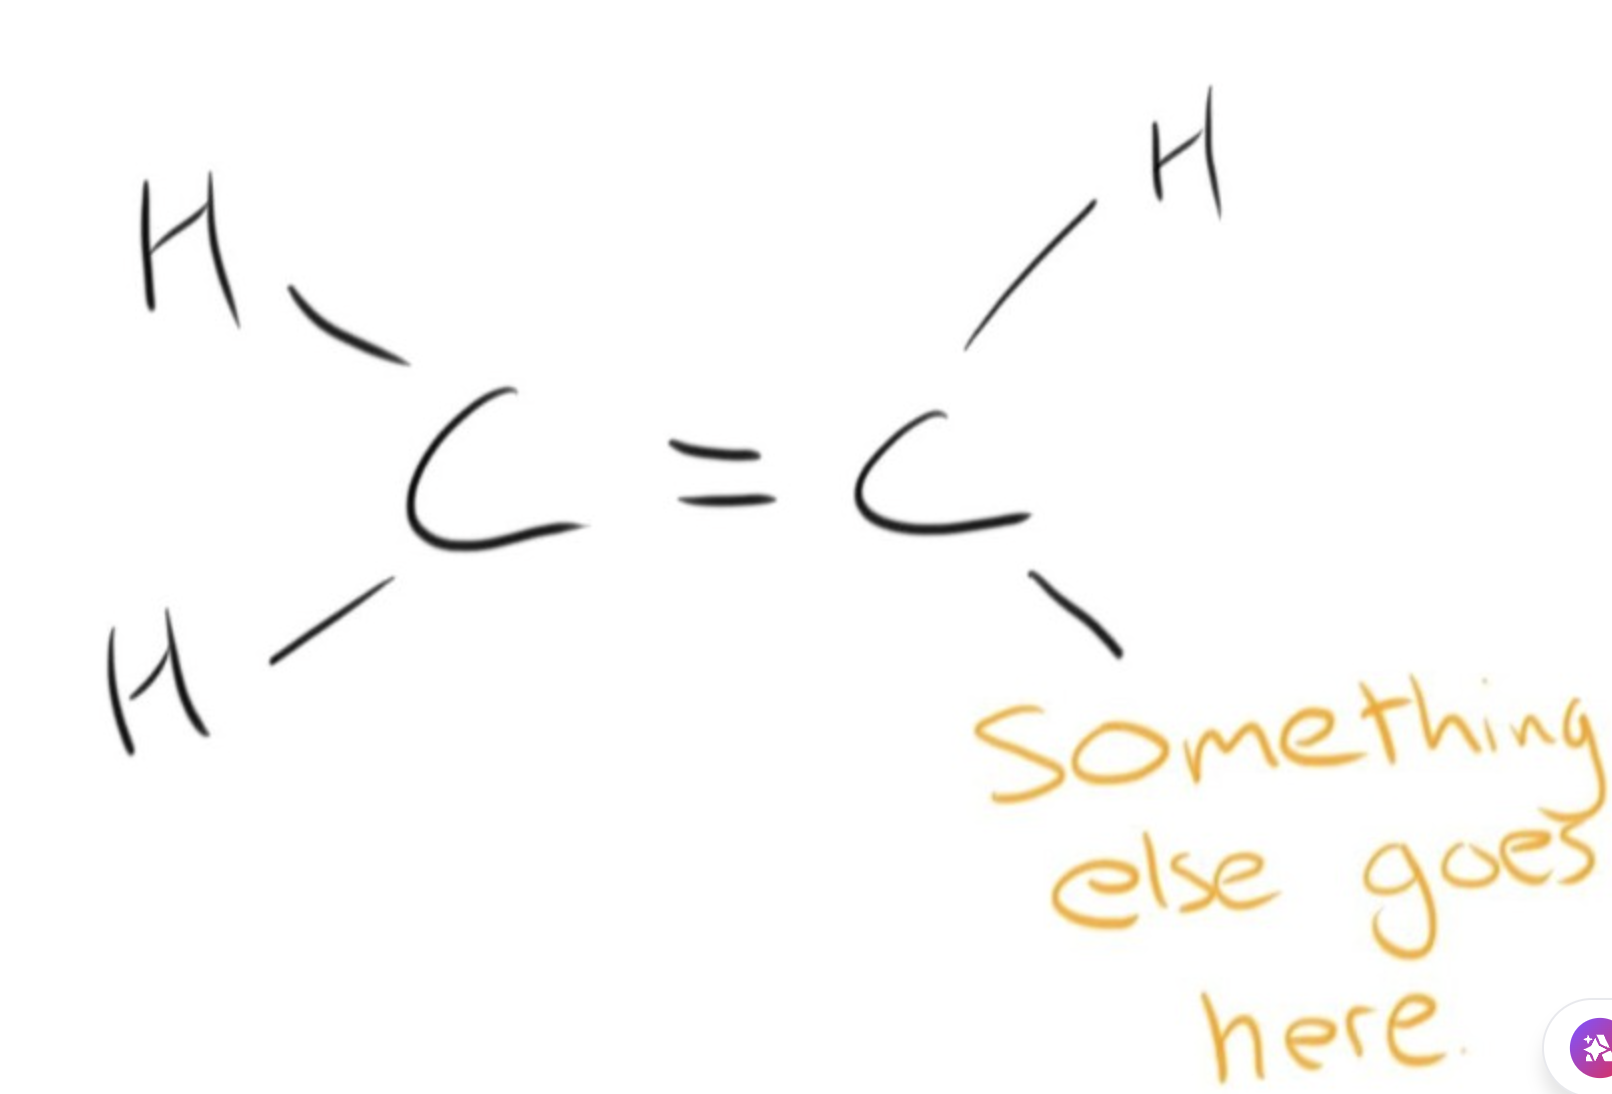 H
H
C = C
H
Something
else goes
here.